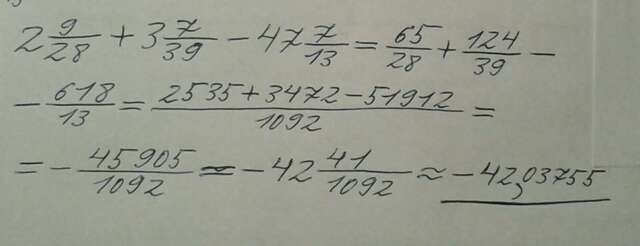 2 9/28 + 3 7/39 − 47 7/13 = 65/28 + 124/39 −
− 618/13 = (2535 + 3472 − 51912)/1092 =
= − 45905/1092 = −42 41/1092 ≈ −42,03755